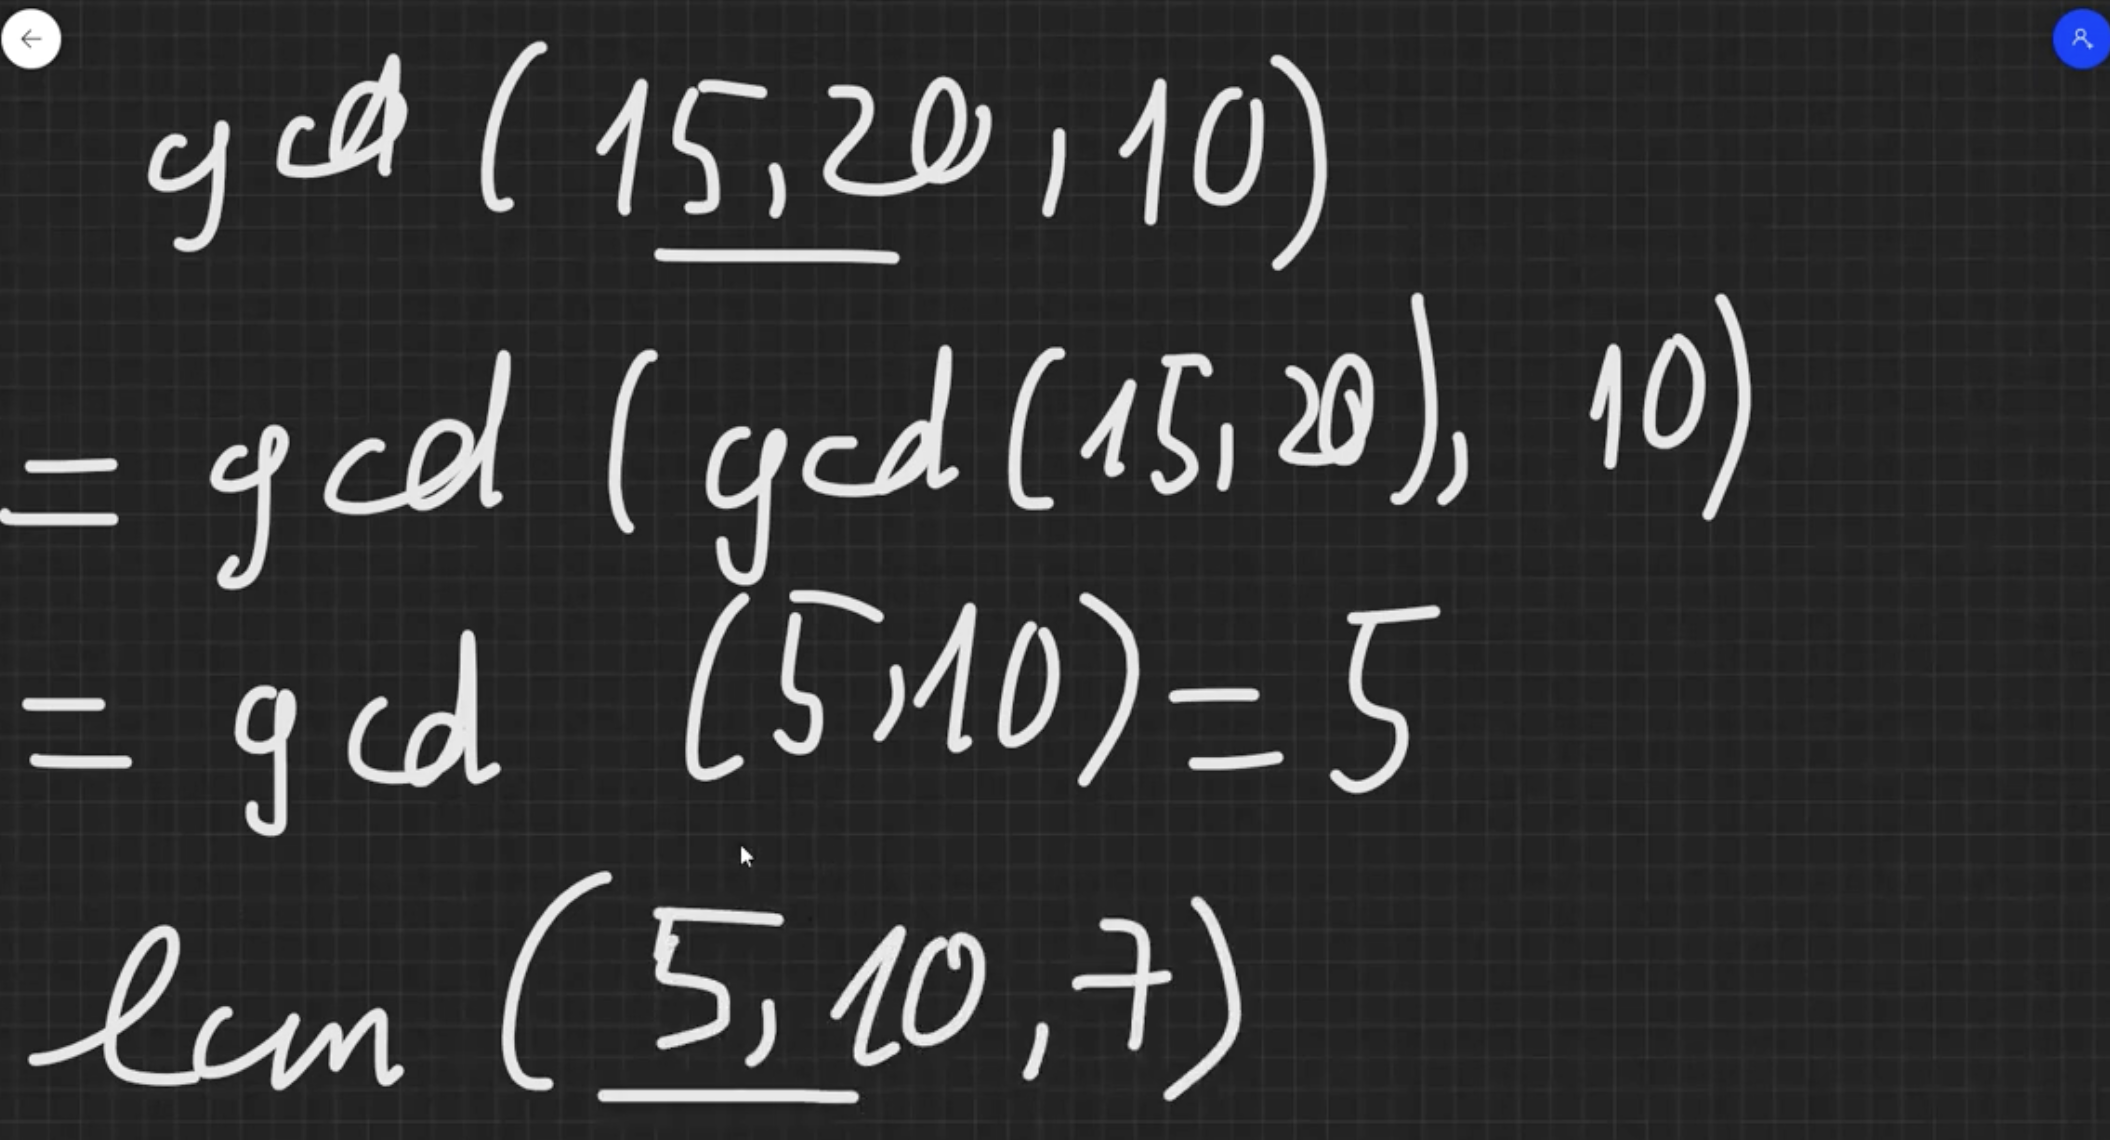 gcd (15,20,10)
= gcd (gcd(15,20), 10)
= gcd (5,10) = 5
lcm (5,10,7)